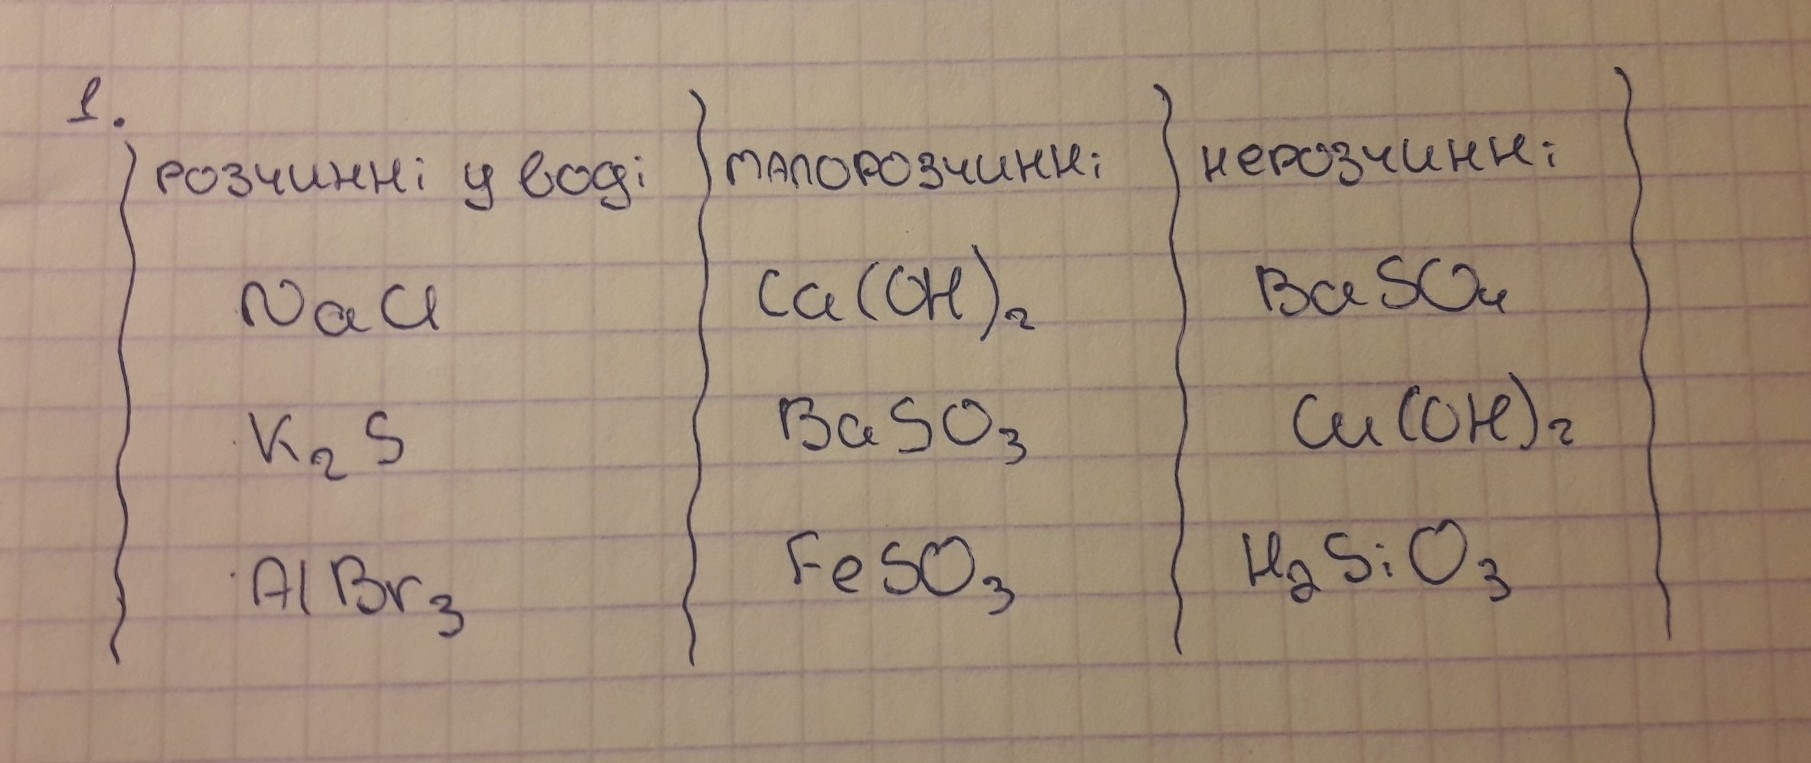 1.
розчинні у воді малорозчинні нерозчинні
NaCl Ca(OH)₂ BaSO₄
K₂S BaSO₃ Cu(OH)₂
AlBr₃ FeSO₃ H₂SiO₃